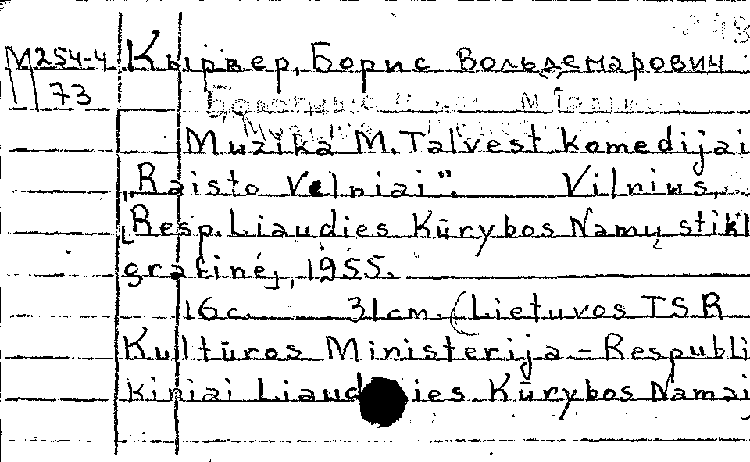 М254-4 Кырвер, Борис Вольдемарович
73
Muzika M. Talvest Komedijai
„Raisto Velniai". Vilnius,
[Resp. Liaudies Kūrybos Namų stikl
grafinė], 1955.
16 c. 31 cm. (Lietuvos TSR
Kultūros Ministerija - Respubli
kiniai Liaudies Kūrybos Namai